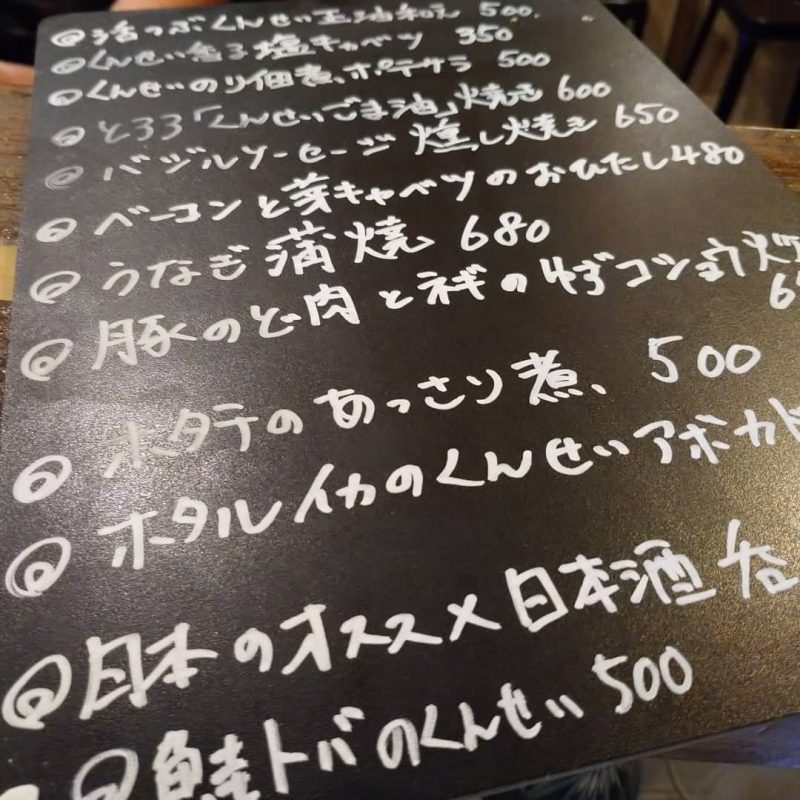 活つぶくんせい玉油和え 500.
くんせい香る塩キャベツ 350
くんせいのり佃煮、ポテサラ 500
とろろ「くんせいごま油」焼き 600
バジルソーセージ 燻し焼き 650
ベーコンと芽キャベツのおひたし480
うなぎ蒲焼 680
豚のど肉とネギのゆずコショウ
ホタテのあっさり煮、500
ホタルイカのくんせいアボカド
日本のオススメ日本酒
鮭トバのくんせい 500